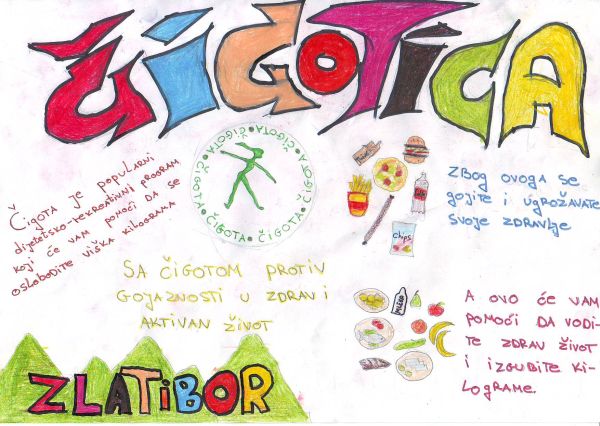 ČIGOTICA
Čigota je popularni
dijetetsko-rekreativni program
koji će vam pomoći da se
oslobodite viška kilograma
ČIGOTA • ČIGOTA • ČIGOTA • ČIGOTA • ČIGOTA •
chips
ZBOG OVOGA SE
GOJITE I UGROŽAVATE
SVOJE ZDRAVLJE
SA ČIGOTOM PROTIV
GOJAZNOSTI U ZDRAV I
AKTIVAN ŽIVOT
MLEKO
A OVO ĆE VAM
POMOĆI DA VODI-
TE ZDRAV ŽIVOT
I IZGUBITE KI-
LOGRAME.
ZLATIBOR